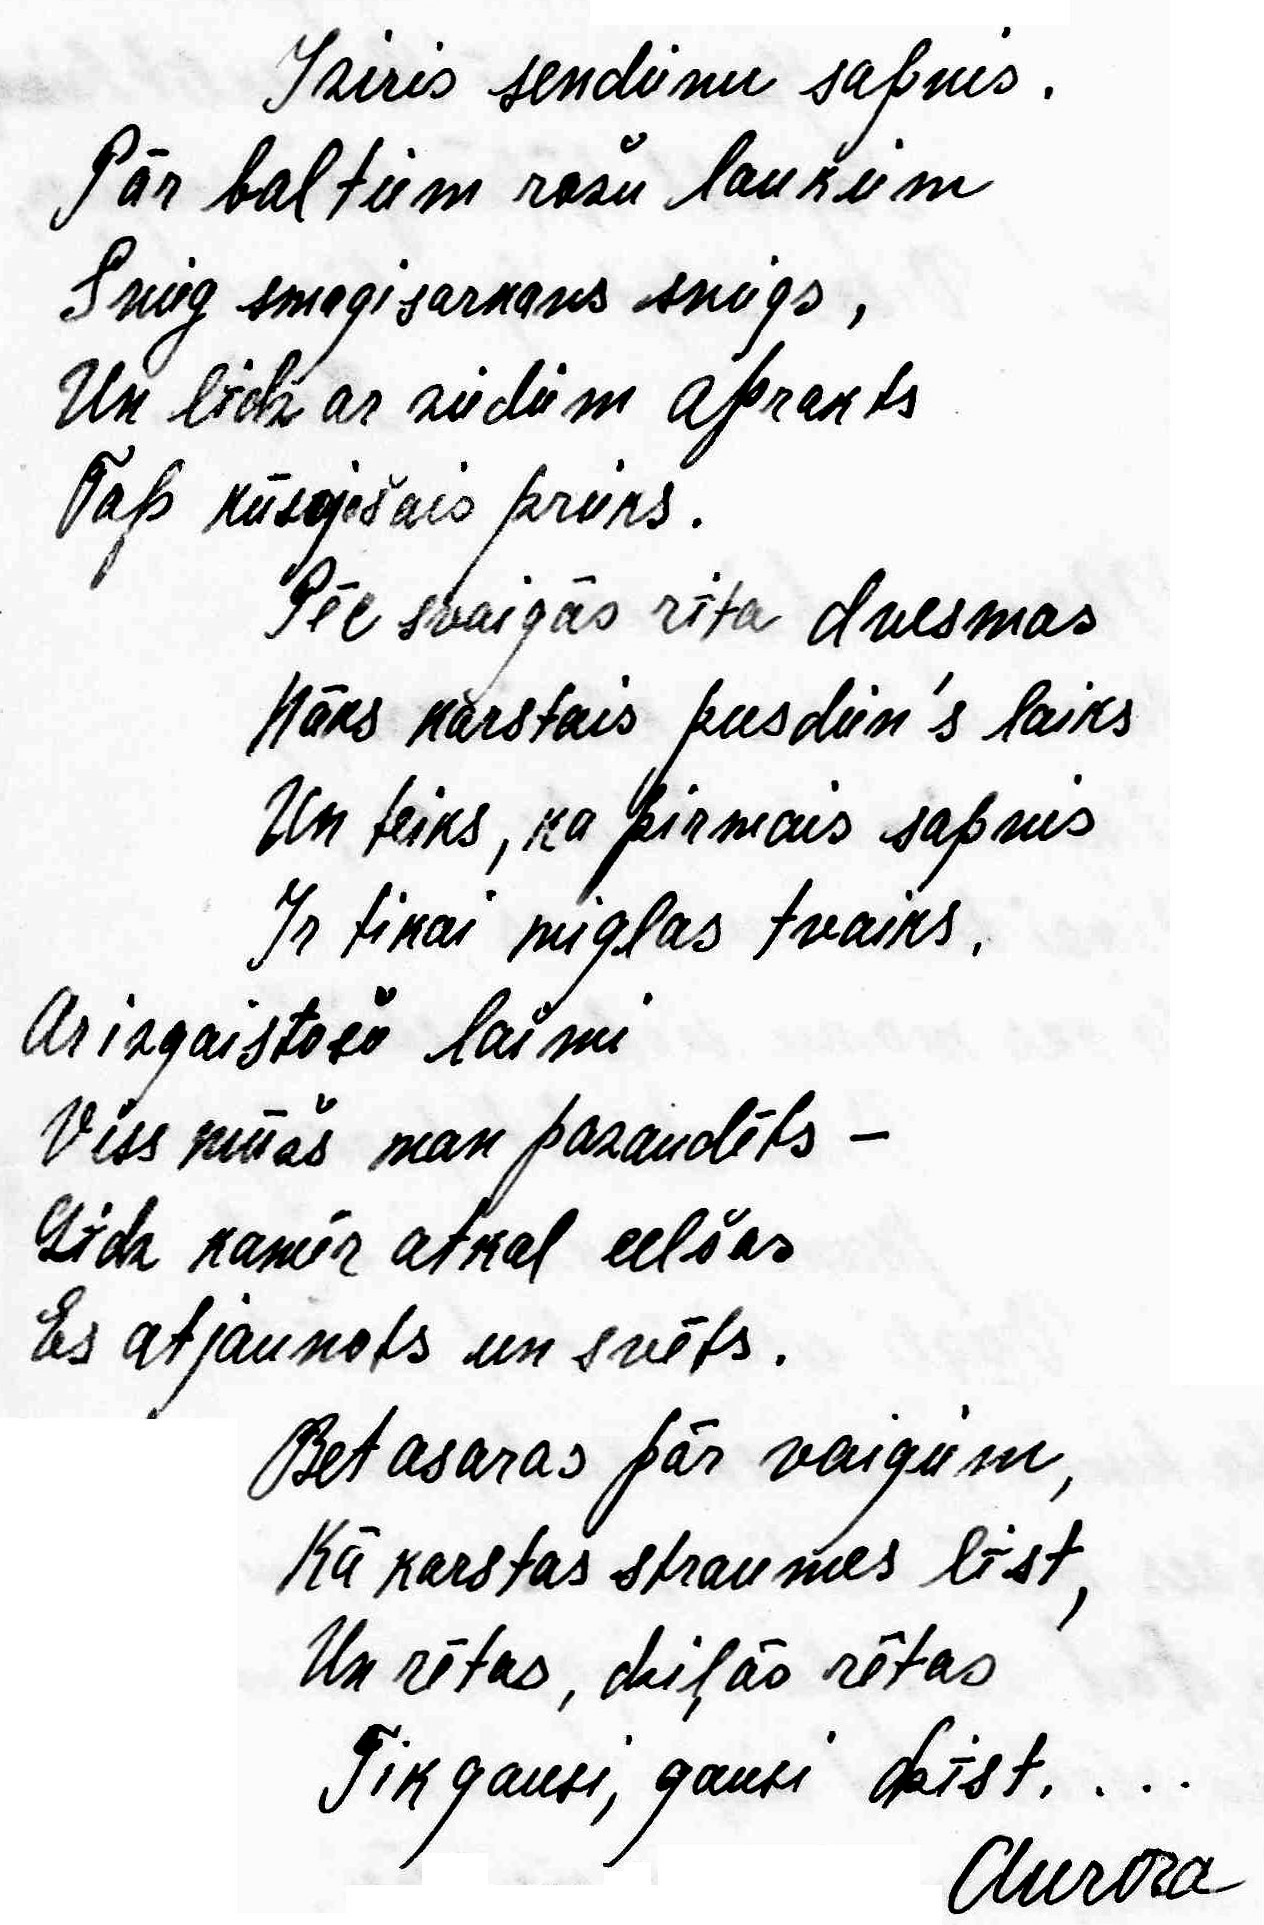 Iziris sendienu sapnis.
Pār baltiem rožu laukiem
Snieg smagi sarkans sniegs,
Un līdz ar ziediem aprakts
Tap kūsojošais prieks.
Pēc svaigās rīta dvesmas
Nāks karstais pusdien's laiks
Un teiks, ka pirmais sapnis
Ir tikai miglas tvaiks.
Ar izgaistošo laimi
Viss mūžs man pazaudēts –
Līdz kamēr atkal celšos
Es atjaunots un svēts.
Bet asaras pār vaigiem,
Kā karstas straumes līst,
Un rētas, dziļās rētas
Tik gausi, gausi dzīst. . . .
Aurora